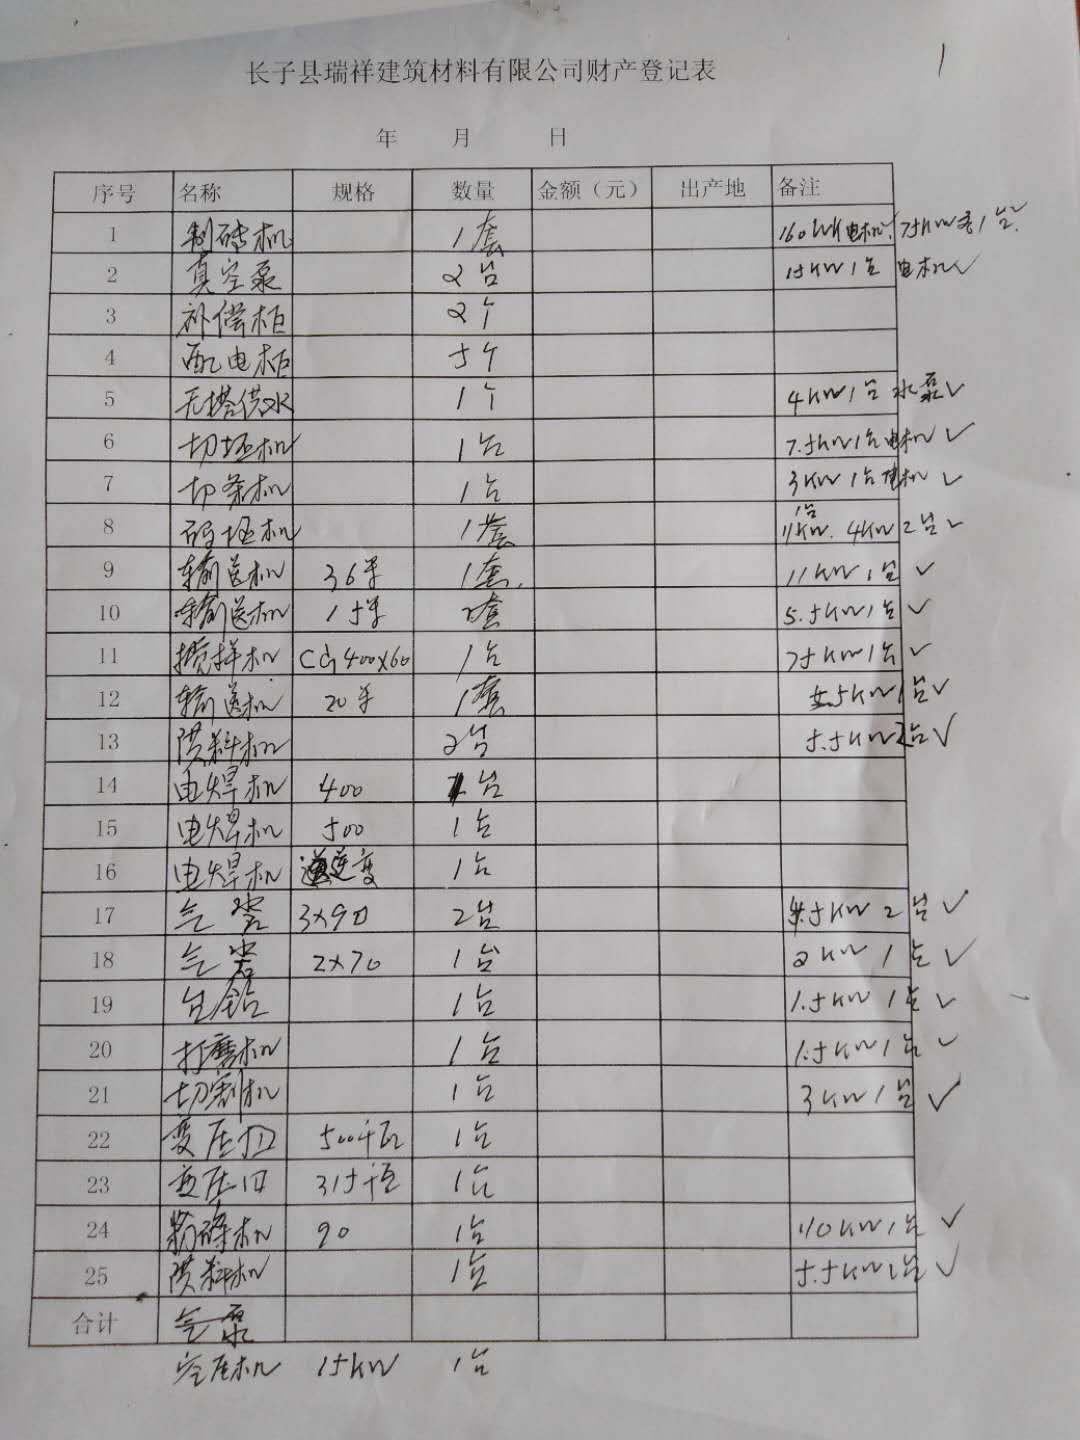 长子县瑞祥建筑材料有限公司财产登记表
1
年 月 日
序号 名称 规格 数量 金额（元） 出产地 备注
1 制砖机 1套 160KW电机, 75KW各1台
2 真空泵 2台 15KW1台 电机✓
3 补偿柜 2个
4 配电柜 5个
5 无塔供水 1个 4KW1台 水泵✓
6 切坯机 1台 7.5KW1台电机 ✓
7 切条机 1台 3KW 1台电机 ✓
8 码坯机 1套 11KW.1台 4KW 2台✓
9 输送机 36米 1套. 11KW 1台 ✓
10 输送机 15米 2套 5.5KW1台 ✓
11 搅拌机 400x60 1台 75KW1台 ✓
12 输送机 20米 1套 5.5KW1台✓
13 供料机 2台 5.5KW 2台✓
14 电焊机 400 台
15 电焊机 500 1台
16 电焊机 逆变 1台
17 气 泵 3x90 2台 4.5KW 2台✓
18 气 泵 2x70 1台 2KW 1台 ✓
19 台钻 1台 1.5KW 1台 ✓
20 打磨机 1台 1.5KW1台 ✓
21 切割机 1台 3KW1台 ✓
22 变压 500千瓦 1台
23 变压 315千瓦 1台
24 粉碎机 90 1台 110KW1台 ✓
25 供料机 1台 5.5KW1台 ✓
合计 气泵
空压机 15KW 1台